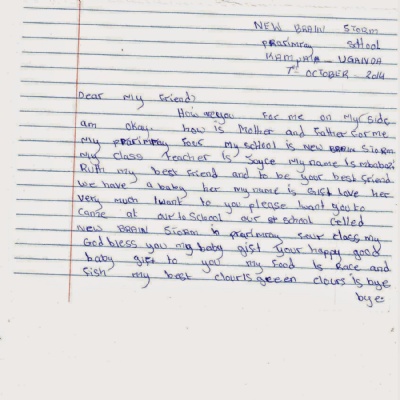 NEW BRAIN STORM
prarimray school
KAMPALA - UGANDA
7th OCTOBER 2014
Dear My Friend?
How are you For me on My side
am okay. how is Mother and Father For me
My prarimray Four my school is NEW BRAIN STORM
My class teacher is Joyce My name is mbabazi
Ruth my best Friend and to be your best Friend
we have a baby her my name is Gift Love her
very much I want to you please want you to
came at our to School our st school celled
NEW BRAIN STORM in prarimray four class my
God bless you my baby gift your happy good
baby gift to you my Food is Race and
Fish my best clours green clours is bye
bye